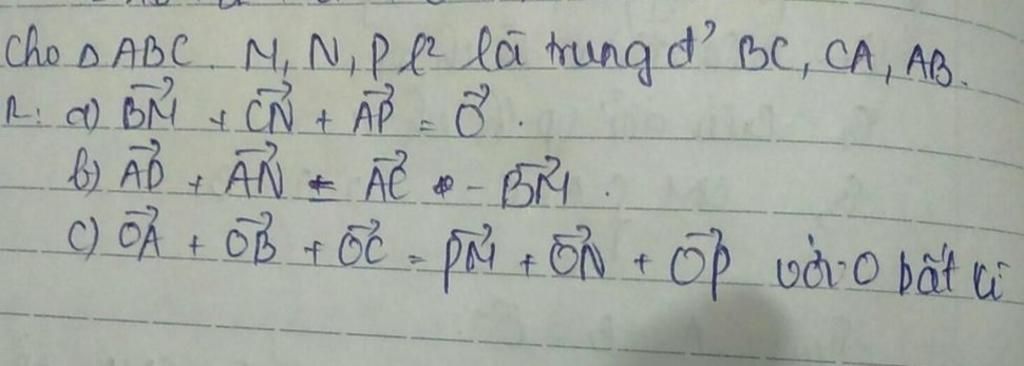 Cho Δ ABC. M, N, P l² là trung đ' BC, CA, AB.
a) BM⃗ + CN⃗ + AP⃗ = O⃗.
b) AP⃗ + AN⃗ = AC⃗ - BM⃗.
c) OA⃗ + OB⃗ + OC⃗ = PM⃗ + ON⃗ + OP⃗ với O bất kì